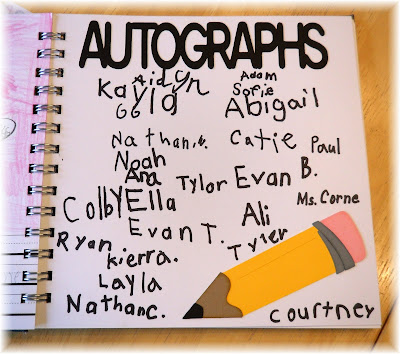 AUTOGRAPHS
Aidyn Adam
Kayla Sofie
GG Abigail
Nathan.B. Catie Paul
Noah
Ana Tylor Evan B.
Colby Ella Ms. Corne
Evan T. Ali
Ryan Tyler
Kierra.
Layla
NathanC. Courtney